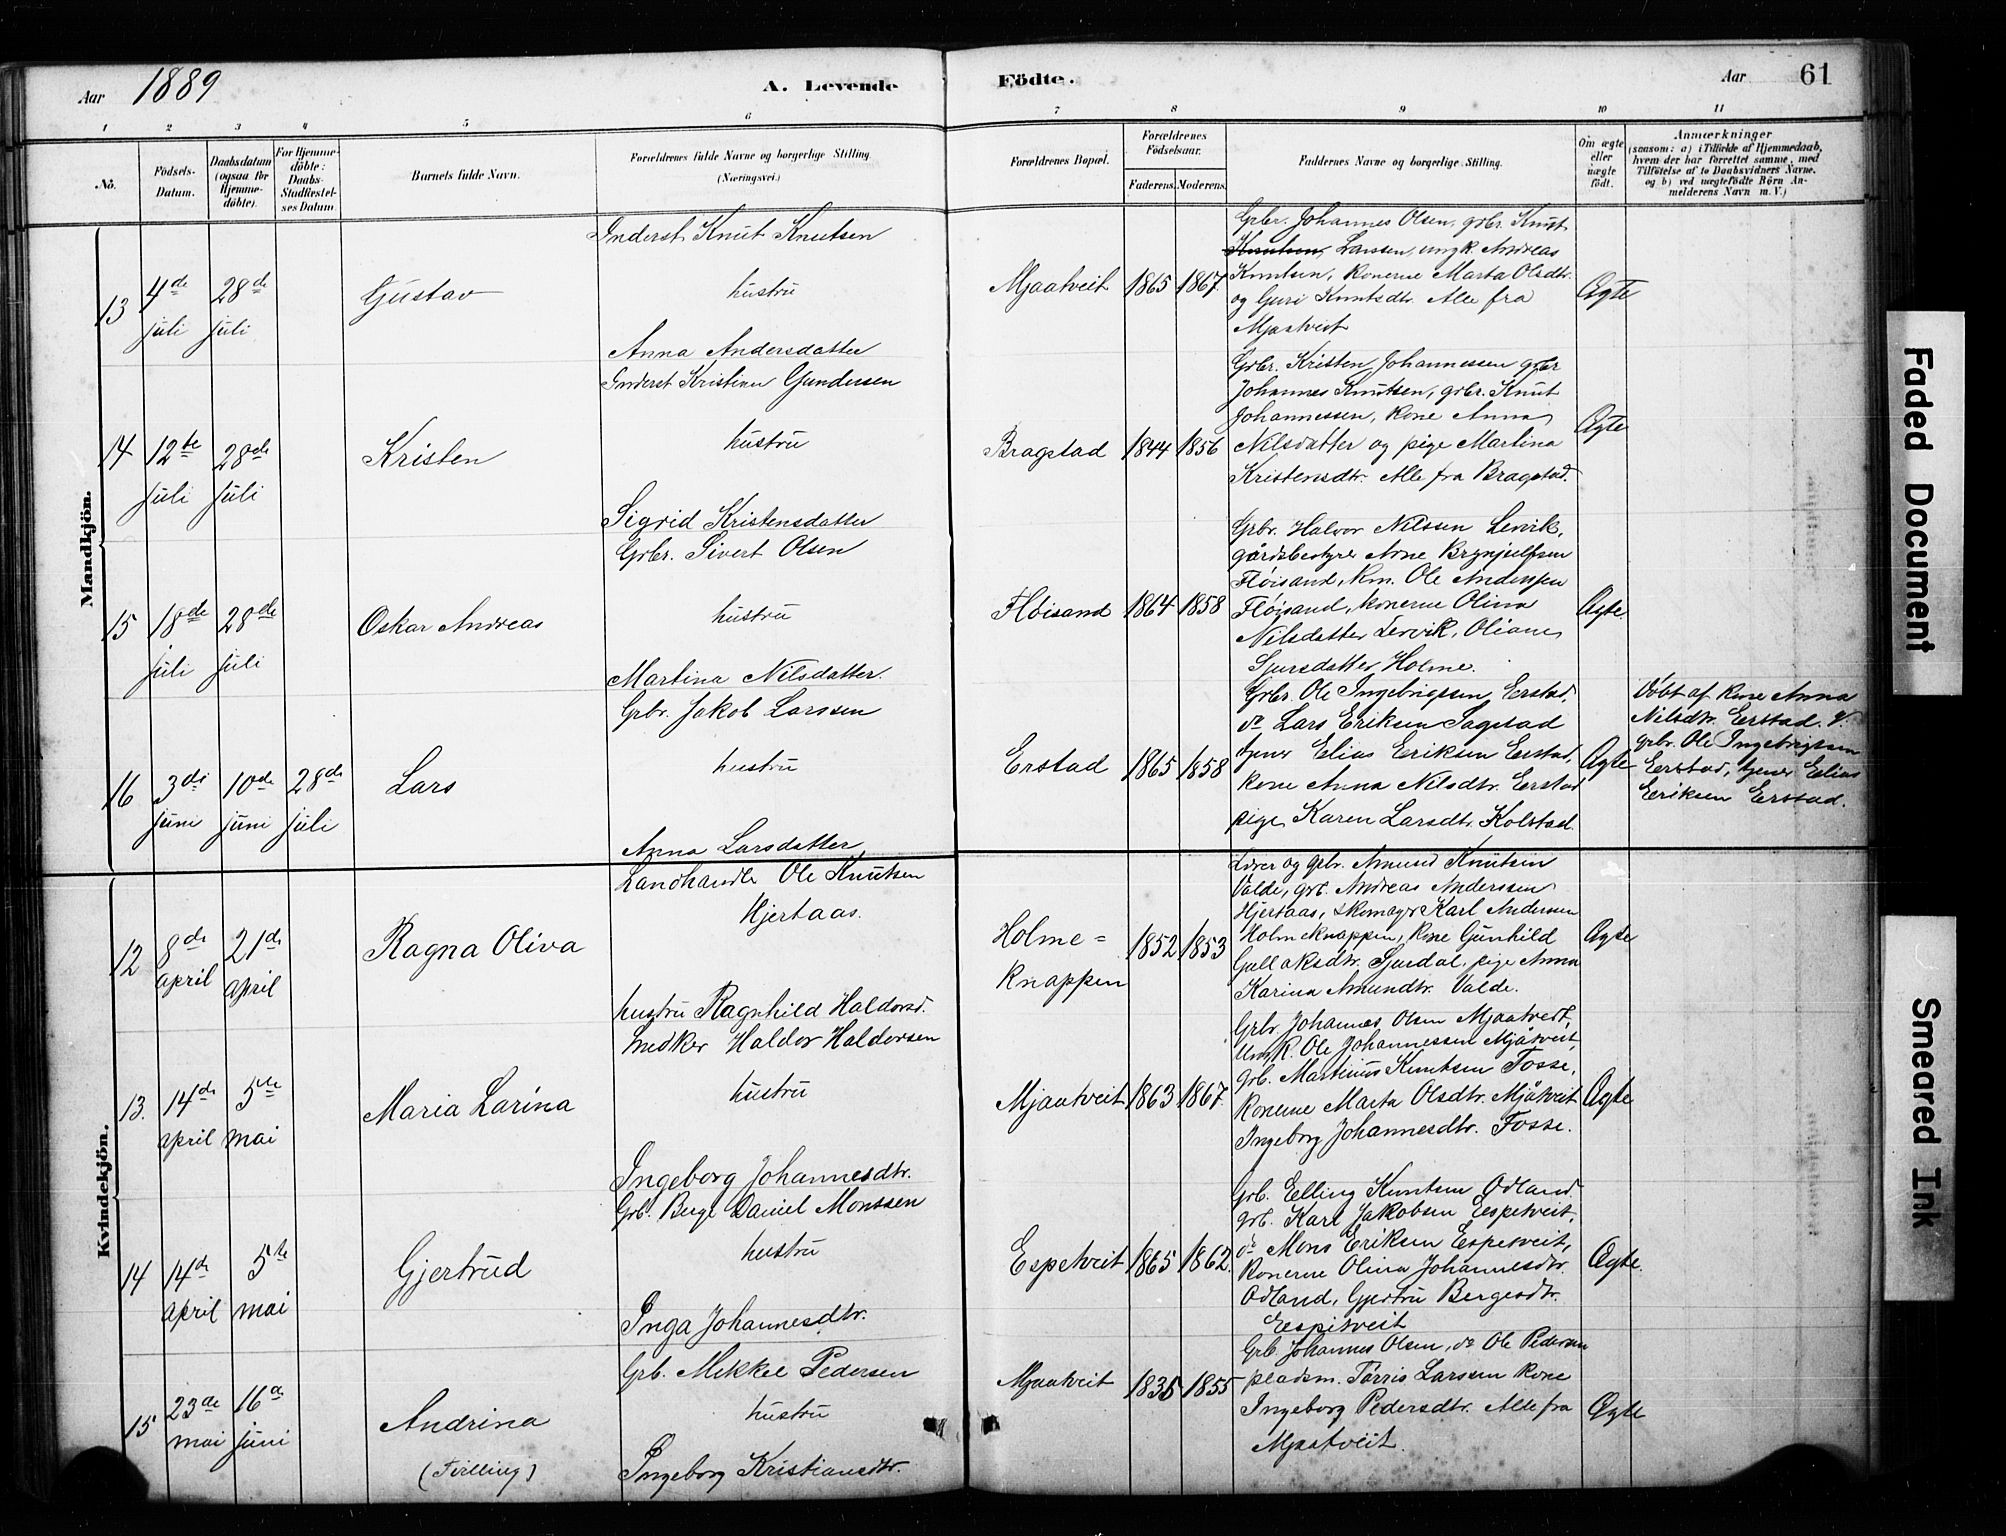 Aar 1889 A. Levende Födte. Aar 61
1 2 3 4 5 6 7 8 9 10 11
No.
Födsels-
Datum.
Daabsdatum
(ogsaa for
Hjemme-
döbte).
For Hjemme-
döbte:
Daabs-
Stadfæstel-
ses Datum.
Barnets fulde Navn.
Forældrenes fulde Navne og borgerlige Stilling
(Næringsvei.)
Forældrenes Bopæl.
Forældrenes
Födselsaar.
Faderens. Moderens.
Faddernes Navne og borgerlige Stilling.
Om ægte
eller
uægte
födt.
Anmærkninger
(saasom: a) i Tilfælde af Hjemmedaab,
hvem der har forrettet samme, med
Tilföielse af to Daabsvidners Navne.
og b) ved uægtefödte Börn An-
melderens Navn m. V.)
Mandkjön.
13
4de
juli
28de
juli
Gustav
Inderst Knut Knutsen
hustru
Anna Andersdatter
Mjaatveit 1865 1867
Grbr. Johannes Olsen, grbr. Knut
Knutsen Larsen, ungk. Andreas
Knutsen, konerne Marta Olsdtr.
og Guri Knutsdtr. Alle fra
Mjaatveit
Ægte
14
12te
juli
28de
juli
Kristen
Inderst Kristian Gundersen
hustru
Sigrid Kristensdatter
Bragstad 1844 1856
Grbr. Kristen Johannessen grbr
Johannes Knutsen, grbr. Knut
Johannessen, kone Anna
Nilsdatter og pige Martina
Kristensdtr. Alle fra Bragstad.
Ægte
15
18de
juli
28de
juli
Oskar Andreas
Grbr. Sivert Olsen
hustru
Martina Nilsdatter.
Fløisand 1864 1858
Grbr. Halvor Nilssen Lervik,
gårdsbestyrer Arne Brynjulfsen
Fløisand, Ole Anderssen
Fløisand, konerne Olina
Nilsdatter Lervik, Oliane
Sjursdatter Holme.
Ægte.
16
3di
juni
10de
juni
28de
juli
Lars
Grbr. Jakob Larssen
hustru
Anna Larsdatter
Erstad 1865 1858
Grbr. Ole Ingebrigtsen Eerstad,
do Lars Eriksen Sagstad
tjener Elias Eriksen Eerstad,
kone Anna Nilsdtr. Eerstad
pige Karen Larsdtr. Kolstad.
Ægte
Døbt af kone Anna
Nilsdtr. Eerstad. V.
grbr. Ole Ingebrigtsen
Eerstad, tjener Elias
Eeriksen Eerstad.
Kvindekjön.
12
8de
april
21de
april
Ragna Oliva
Landhandler Ole Knutsen
Hjertaas.
hustru Ragnhild Haldorsd.
Holme=
knappen
1852 1853
Lærer og grbr. Amund Knutsen
Valde, grb. Andreas Anderssen
Hjertaas, skomager Karl Anderssen
Holmeknappen, kone Gunhild
Gullaksdtr. Sjurdal, pige Anna
Karina Amundtr. Valde.
Ægte
13.
14de
april
5te
mai
Maria Larina
Snedker Haldor Haldorsen
hustru
Ingeborg Johannesdtr.
Mjaatveit 1863 1867.
Grbr. Johannes Olsen Mjaatveit,
Ungk. Ole Johannessen Mjåtveit,
grb. Martinus Knutsen Fosse,
Konerne Marta Olsdtr. Mjåtveit
Ingeborg Johannesdtr. Fosse.
Ægte
14
14de
april
5te
mai
Gjertrud
Grb. Berge Daniel Monssen
hustru
Inga Johannesdtr.
Espetveit 1865 1862.
Grb. Eelling Knutsen Odland.
grb. Karl Jakobsen Eespetveit,
do Mons Eriksen Espetveit,
Konerne Olina Johannesdtr.
Odland, Gjertru Bergesdtr.
Eespetveit
Ægte.
15
23de
mai
16de
juni
Andrina
(Tvilling)
Grb. Mikkel Pedersen
hustru
Ingeborg Kristiansdtr.
Mjaatveit 1835 1855
Grb. Johannes Olsen, do Ole Pedersen
pladsm. Tørris Larssen kone
Ingeborg Pedersdtr. Alle fra
Mjaatveit.
Ægte
Faded Document
Smeared Ink